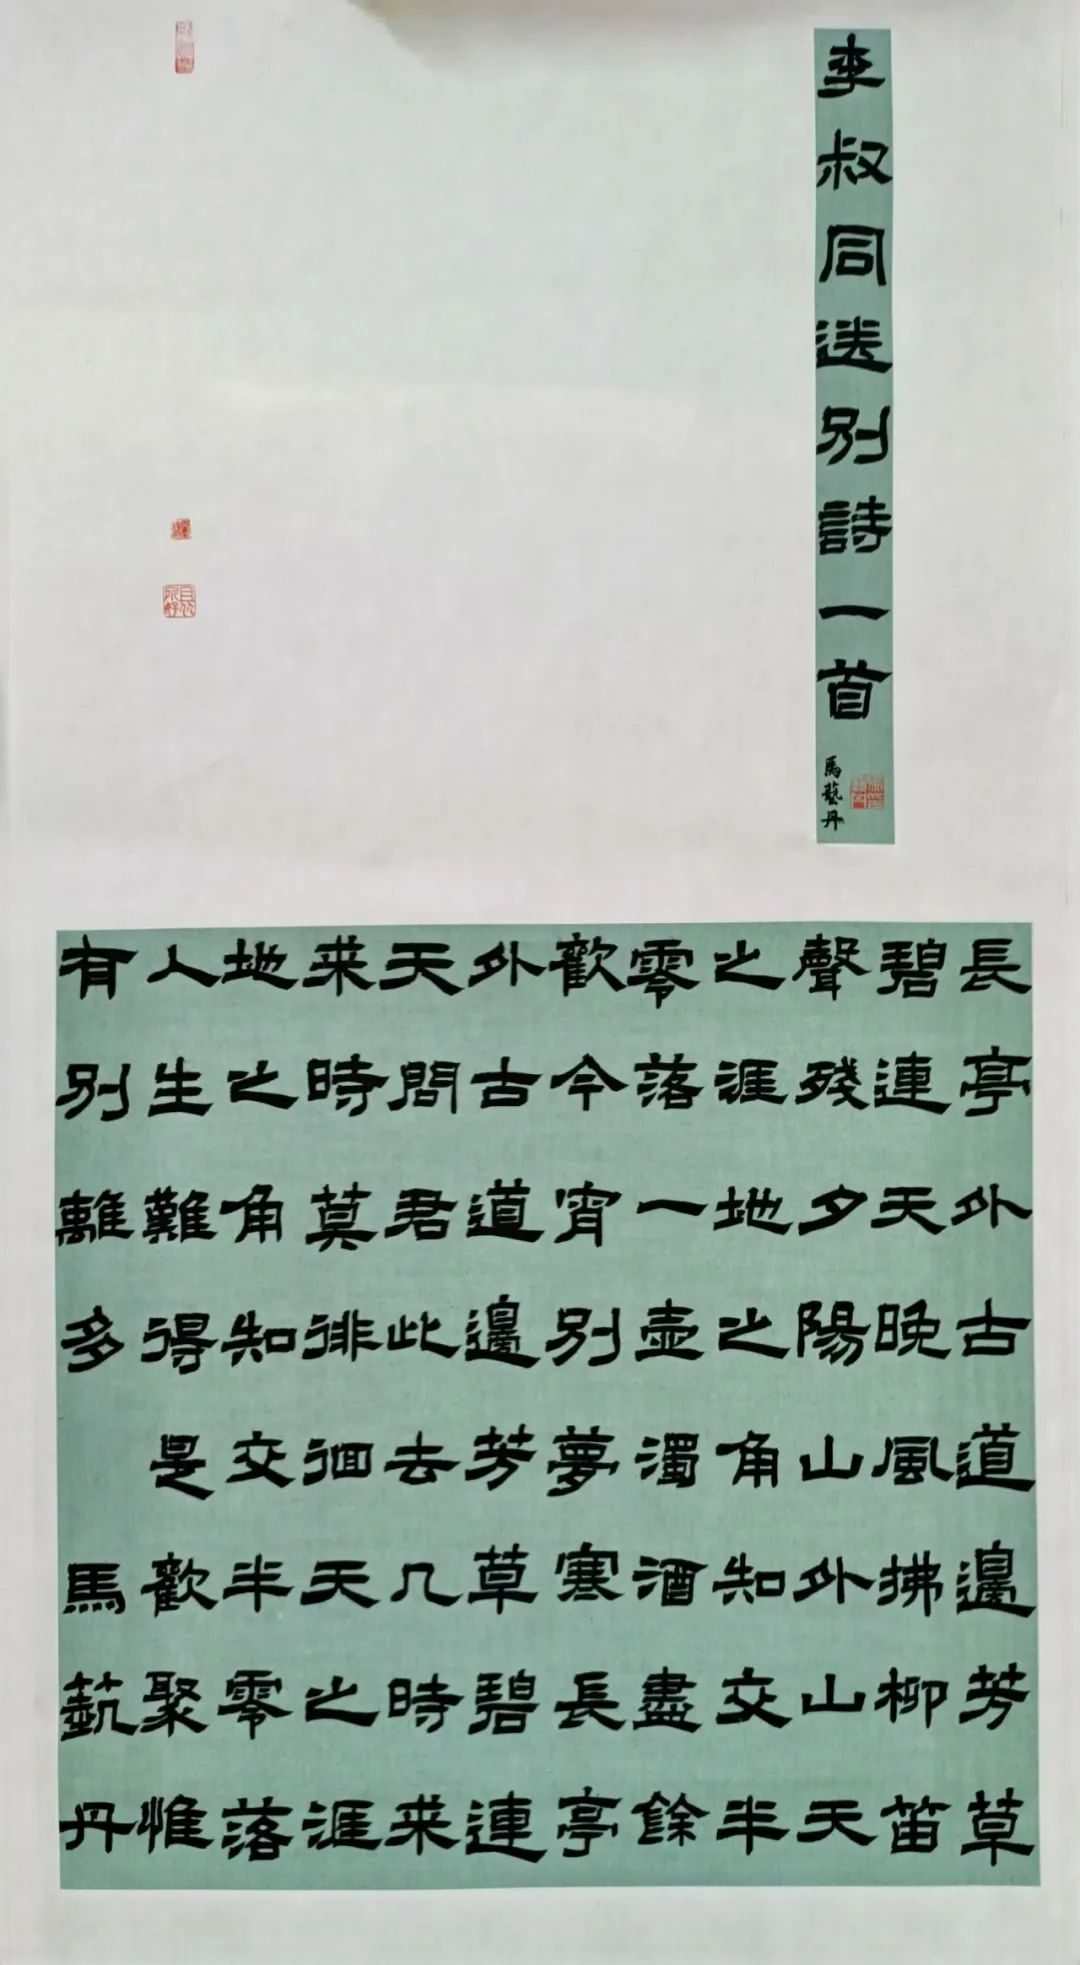 李叔同送別詩一首
馬藝丹
長亭外古道邊芳草
碧連天晚風拂柳笛
聲殘夕陽山外山天
之涯地之角知交半
零落一壷濁酒盡餘
歡今宵別夢寒長亭
外古道邊芳草碧連
天問君此去几時来
来時莫徘徊天之涯
地之角知交半零落
人生難得是歡聚惟
有別離多 馬蓺丹